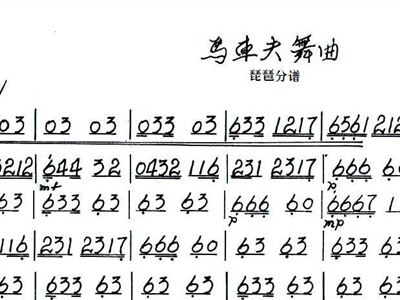 马車夫舞曲
琵琶分谱
03 | 03 03 | 033 03 | 633 1217 | 6561 212
5212 | 644 32 | 0432 116 | 231 2317 | 666 60
mf p
63 | 633 63 | 63 63 | 666 60 | 6667 1
p mp
116 | 231 2317 | 666 60 | 63 63 | 633 63
63 | 633 63 | 63 63 | 633 63 | 63 63